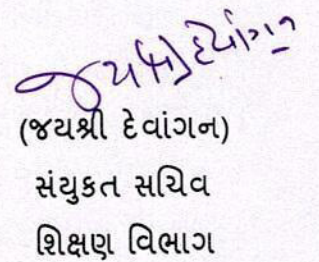 જયશ્રી દેવાંગન
(જયશ્રી દેવાંગન)
સંયુકત સચિવ
શિક્ષણ વિભાગ